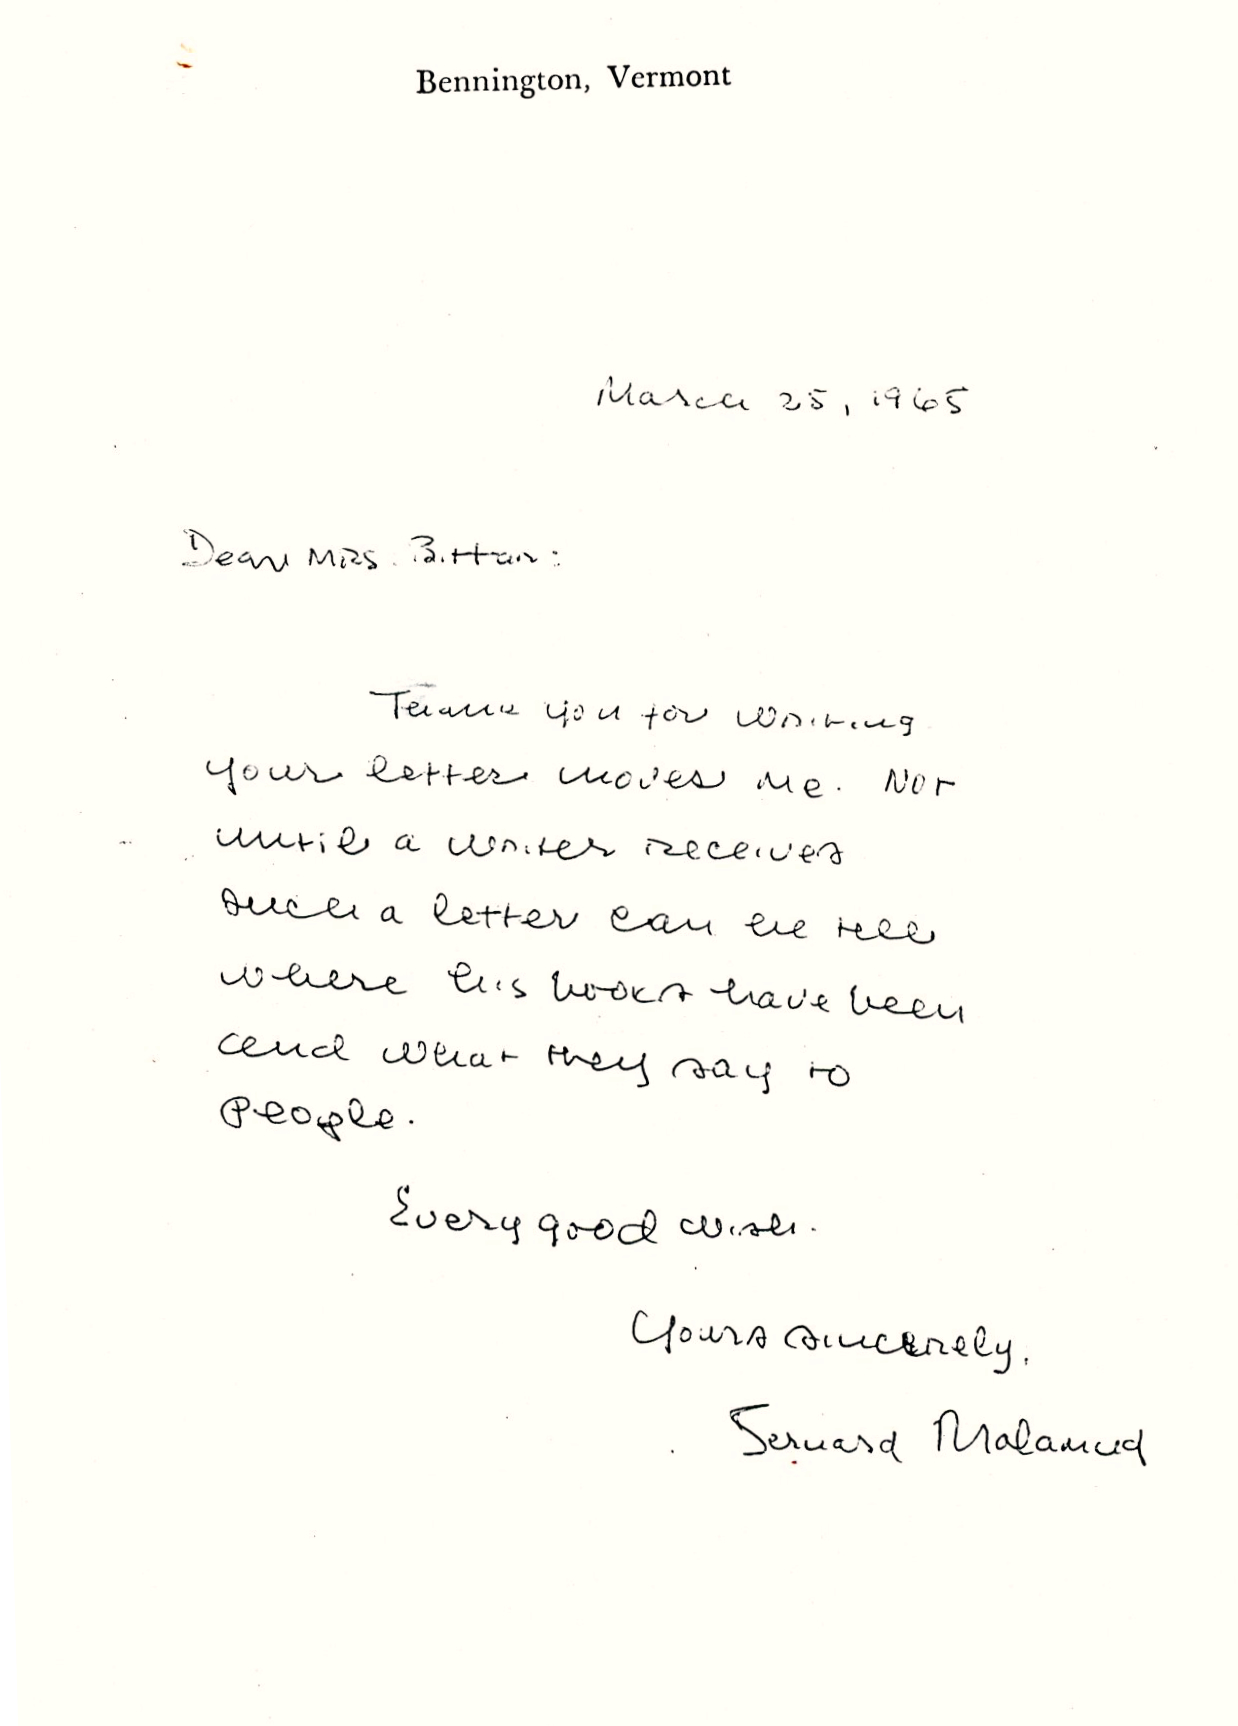 Bennington, Vermont
March 25, 1965
Dear Mrs. Bittan:
Thank you for writing
your letter moves me. Not
until a writer receives
such a letter can he tell
where his books have been
and what they say to
people.
Every good wish.
Yours sincerely,
Bernard Malamud